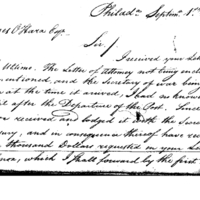 Philad.a Septem.r 1st
es O'Hara Esqr.
Sir
I received your Let
Ultimo. The Letter of Attorney not being inclo
entioned, and the Secretary of War being
at the time it arrived, I had no know
it after the Departure of the Post. Since
on received and lodged it with the Secre
ury, and in consequence thereof have rec
thousand Dollars requested in your L
ance, which I shall forward by the first